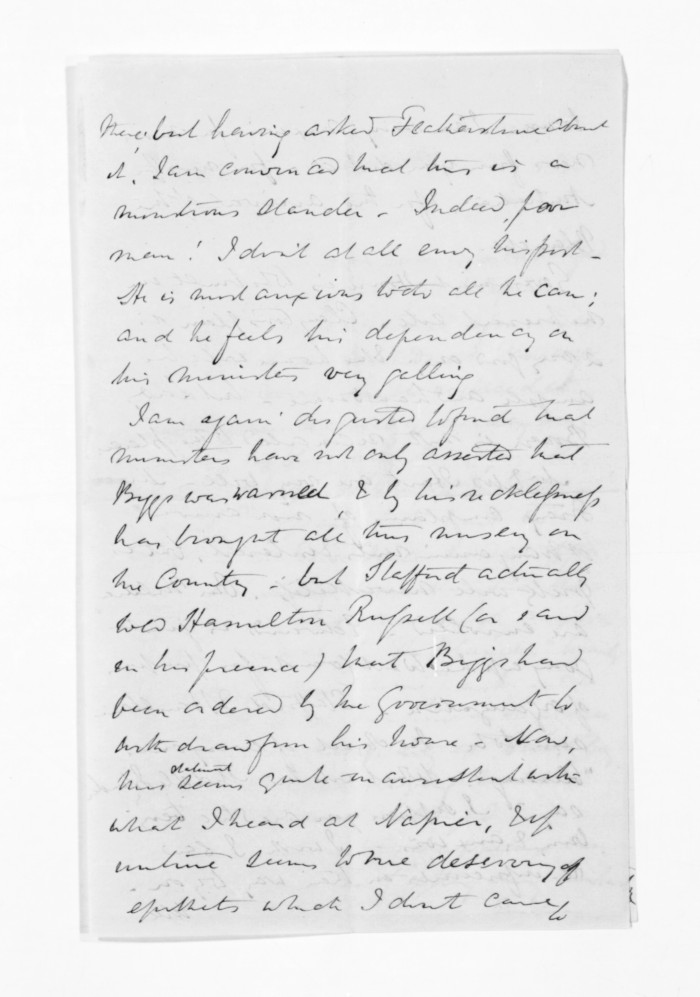 there, but having asked Featherstone about
it, I am convinced that this is a
monstrous slander - Indeed, poor
man! I don't at all envy his post -
He is most anxious to do all he can;
and he feels his dependency on
his ministers very galling
I am again disgusted to find that
ministers have not only asserted that
Biggs was warned, & by his recklessness
has brought all this misery on
the Country - but Stafford actually
told Hamilton Russell (or said
in his presence) that Biggs had
been ordered by the Government to
withdraw from his house - Now,
this statement seems quite inconsistent with
what I heard at Napier, & if
untrue seems to me deserving of
epithets which I don't care to